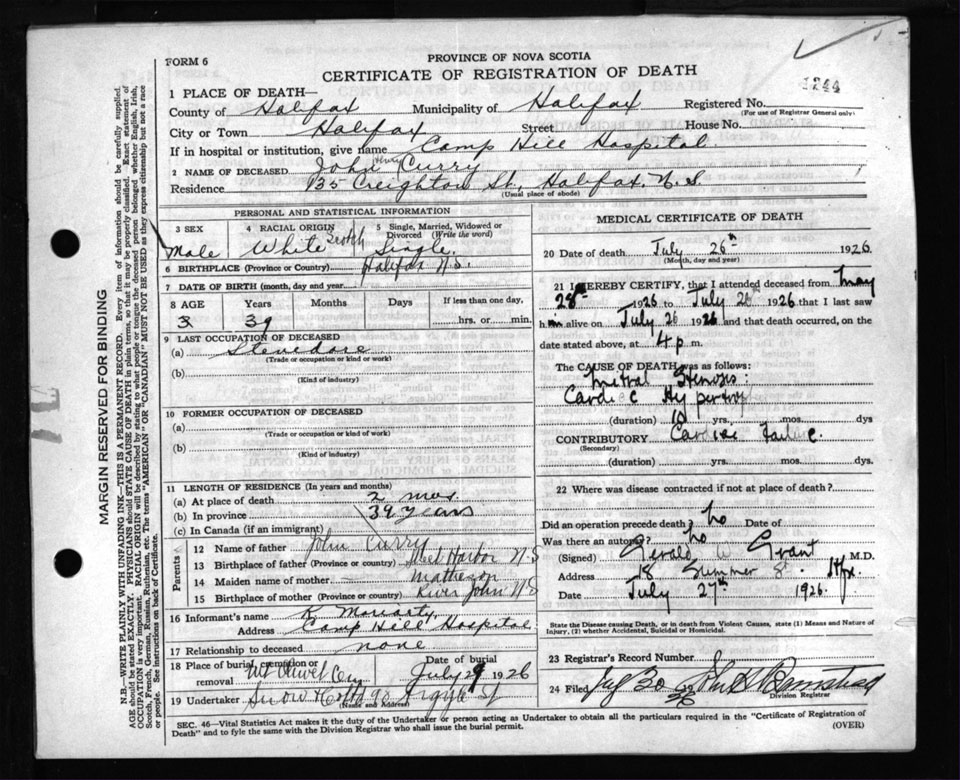 FORM 6
PROVINCE OF NOVA SCOTIA
CERTIFICATE OF REGISTRATION OF DEATH
1244
1 PLACE OF DEATH—
County of Halifax Municipality of Halifax Registered No.
(For use of Registrar General only)
City or Town Halifax Street House No.
If in hospital or institution, give name Camp Hill Hospital
2 NAME OF DECEASED John Henry Curry
Residence 135 Creighton St., Halifax. N.S.
(Usual place of abode)
PERSONAL AND STATISTICAL INFORMATION
3 SEX 4 RACIAL ORIGIN 5 Single, Married, Widowed or
Divorced (Write the word)
Male White Scotch Single.
6 BIRTHPLACE (Province or Country) Halifax N.S.
7 DATE OF BIRTH (month, day and year)
8 AGE Years Months Days If less than one day,
3 39 hrs. or min.
9 LAST OCCUPATION OF DECEASED
(a) Stevedore
(Trade or occupation or kind of work)
(b)
(Kind of industry)
10 FORMER OCCUPATION OF DECEASED
(a)
(Trade or occupation or kind of work)
(b)
(Kind of industry)
11 LENGTH OF RESIDENCE (In years and months)
(a) At place of death 2 mos.
(b) In province 39 years
(c) In Canada (if an immigrant)
Parents
12 Name of father John Curry
13 Birthplace of father (Province or Country) Harbor N-S
14 Maiden name of mother — Matheson
15 Birthplace of mother (Province or Country) River John N-S
16 Informant's name K Moriarty,
Address Camp Hill Hospital
17 Relationship to deceased none
18 Place of burial, cremation or removal Mt Olivet Cem Date of burial July 29 1926
19 Undertaker Snow & Co 90 Argyle St
(Name and Address)
MEDICAL CERTIFICATE OF DEATH
20 Date of death July 26th 1926
(Month, day and year)
21 I HEREBY CERTIFY, that I attended deceased from May
28 1926 to July 26 1926 that I last saw
him alive on July 26 1926 and that death occurred, on
date stated above, at 4 p m.
The CAUSE OF DEATH was as follows:
Mitral Stenosis:
Cardiac
(duration) 10 yrs. mos. dys
CONTRIBUTORY Cardiac Failure
(Secondary)
(duration) yrs. mos. dys.
22 Where was disease contracted if not at place of death?
Did an operation precede death? no Date of
Was there an autopsy? no
(Signed) Gerald W Grant M.D.
Address 18 Summer St. Hfx.
Date July 27th 1926.
State the Disease causing Death, or in death from Violent Causes, state (1) Means and Nature of
Injury, (2) whether Accidental, Suicidal or Homicidal.
23 Registrar's Record Number
24 Filed 30
Division Registrar
SEC. 46—Vital Statistics Act makes it the duty of the Undertaker or person acting as Undertaker to obtain all the particulars required in the "Certificate of Registration of
Death" and to fyle the same with the Division Registrar who shall issue the burial permit.
(OVER)
MARGIN RESERVED FOR BINDING
N.B.—WRITE PLAINLY WITH UNFADING INK—THIS IS A PERMANENT RECORD. Every item of information should be carefully supplied.
AGE should be stated EXACTLY. PHYSICIANS should STATE CAUSE OF DEATH in plain terms, so that it may be properly classified. Exact statement of
OCCUPATION is very important. RACIAL ORIGIN will be described by stating to what people or tongue the deceased person belonged whether English, Irish,
Scotch, French, German, Russian, Ruthenian, etc. The terms "AMERICAN" OR "CANADIAN" MUST NOT BE USED as they express citizenship but not a race
or people. See instructions on back of Certificate.